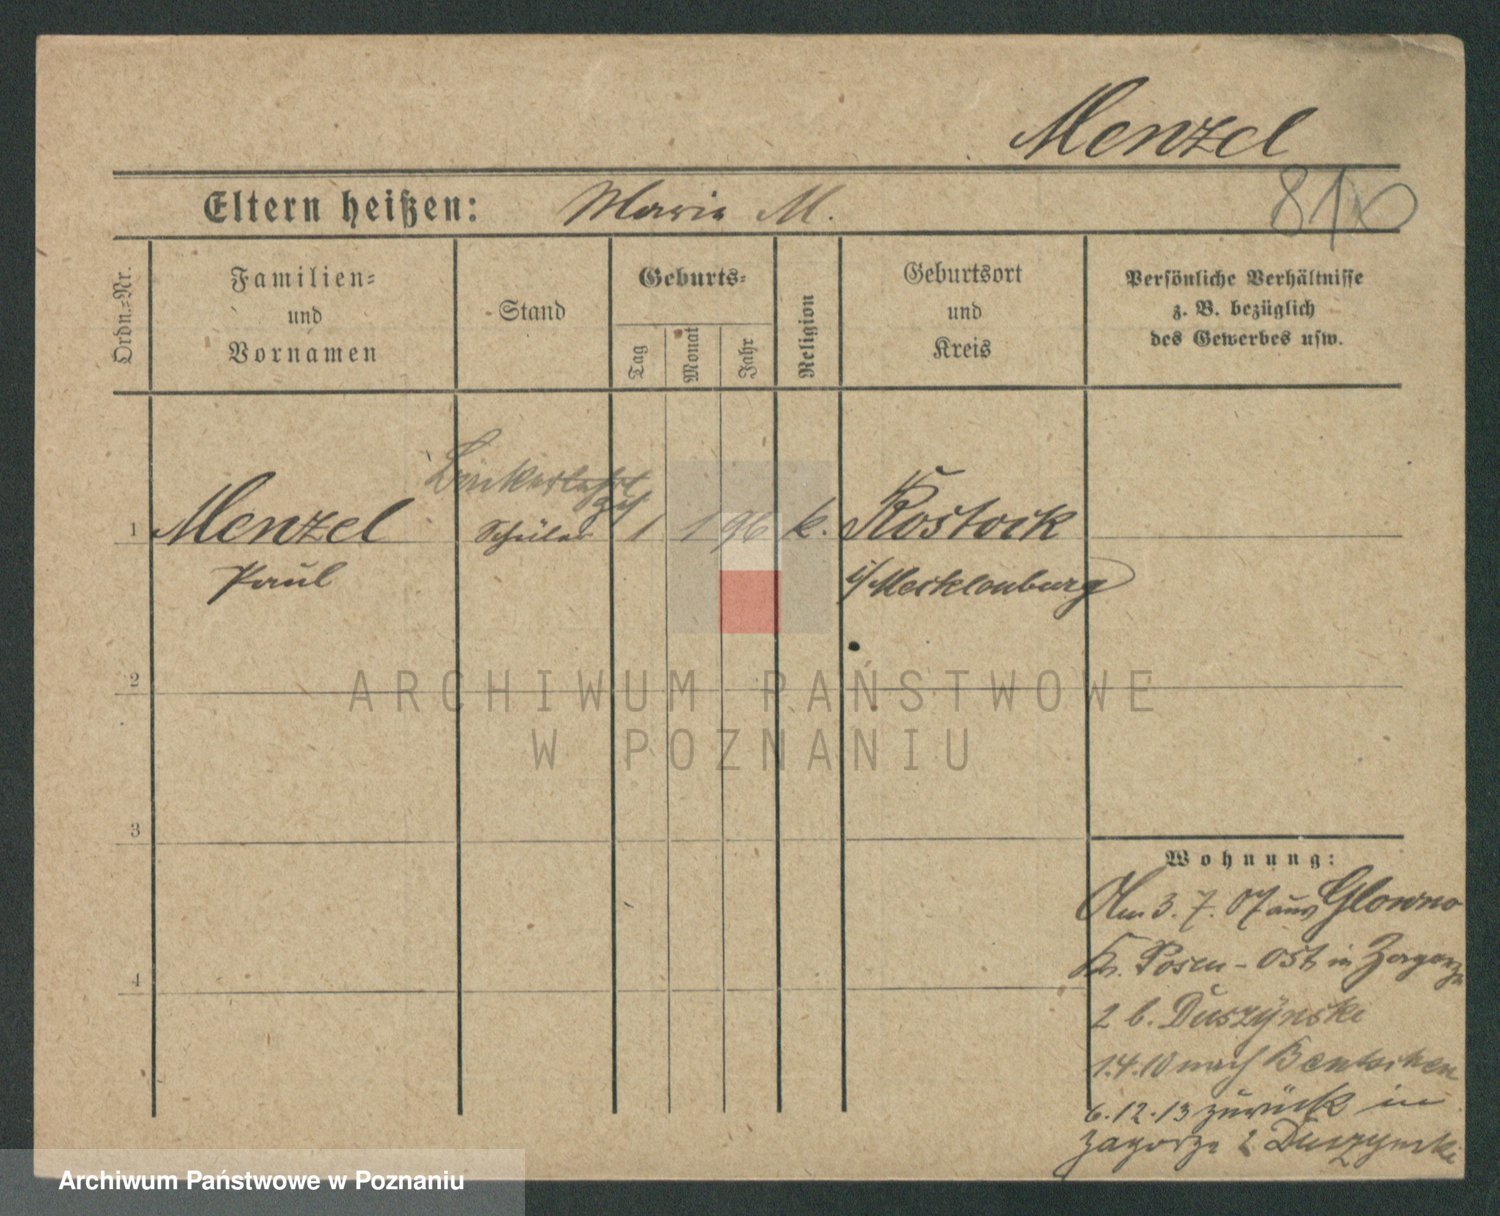 Menzel
Eltern heißen: Maria M.
Ordn.=Nr.
Familien=
und
Vornamen
Stand
Geburts=
Tag
Monat
Jahr
Religion
Geburtsort
und
Kreis
Persönliche Verhältnisse
z. B. bezüglich
des Gewerbes usw.
1 Menzel Schüler 1 1 96 k. Rostock
Paul i/Mecklenburg
2
3
4
Wohnung:
Am 3. 7. 07 aus Glowno
Kr. Posen-Ost in Zagorze
2 b. Duszÿnski
1.4.10 nach Bentschen
6.12.13 zurück in
Zagorze 2 Duszynski
ARCHIWUM PAŃSTWOWE
W POZNANIU
Archiwum Państwowe w Poznaniu